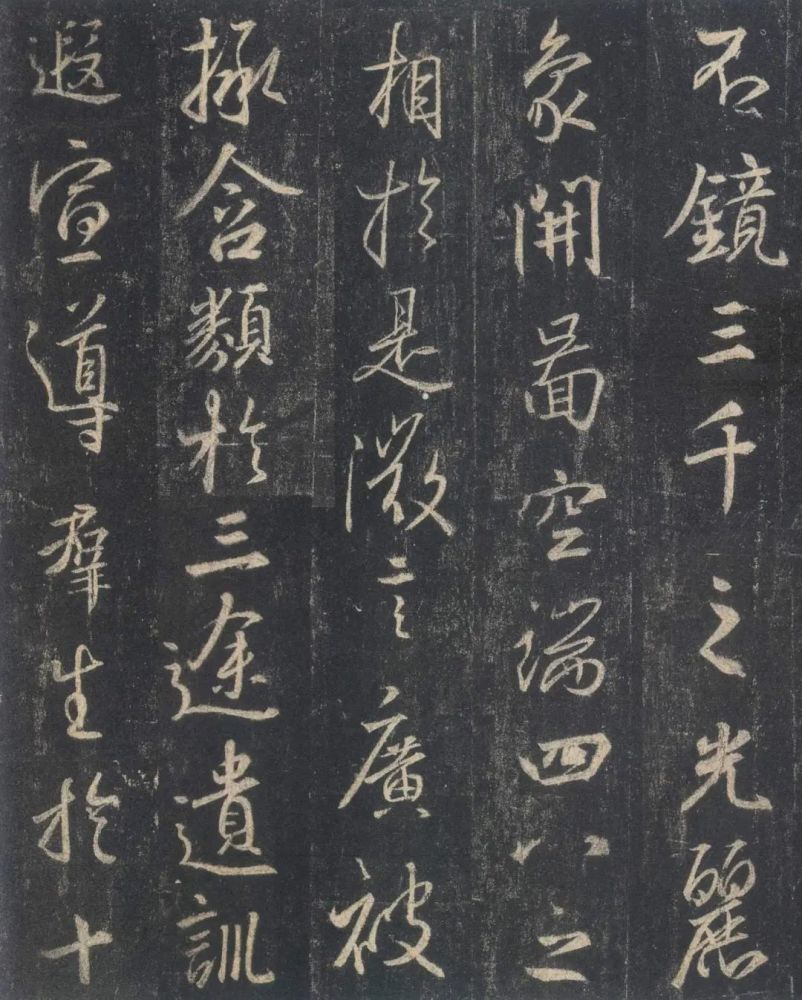 不鏡三千之光麗
象開啚空端四八之
相扵是微言廣被
拯含類扵三途遺訓
遐宣導羣生扵十